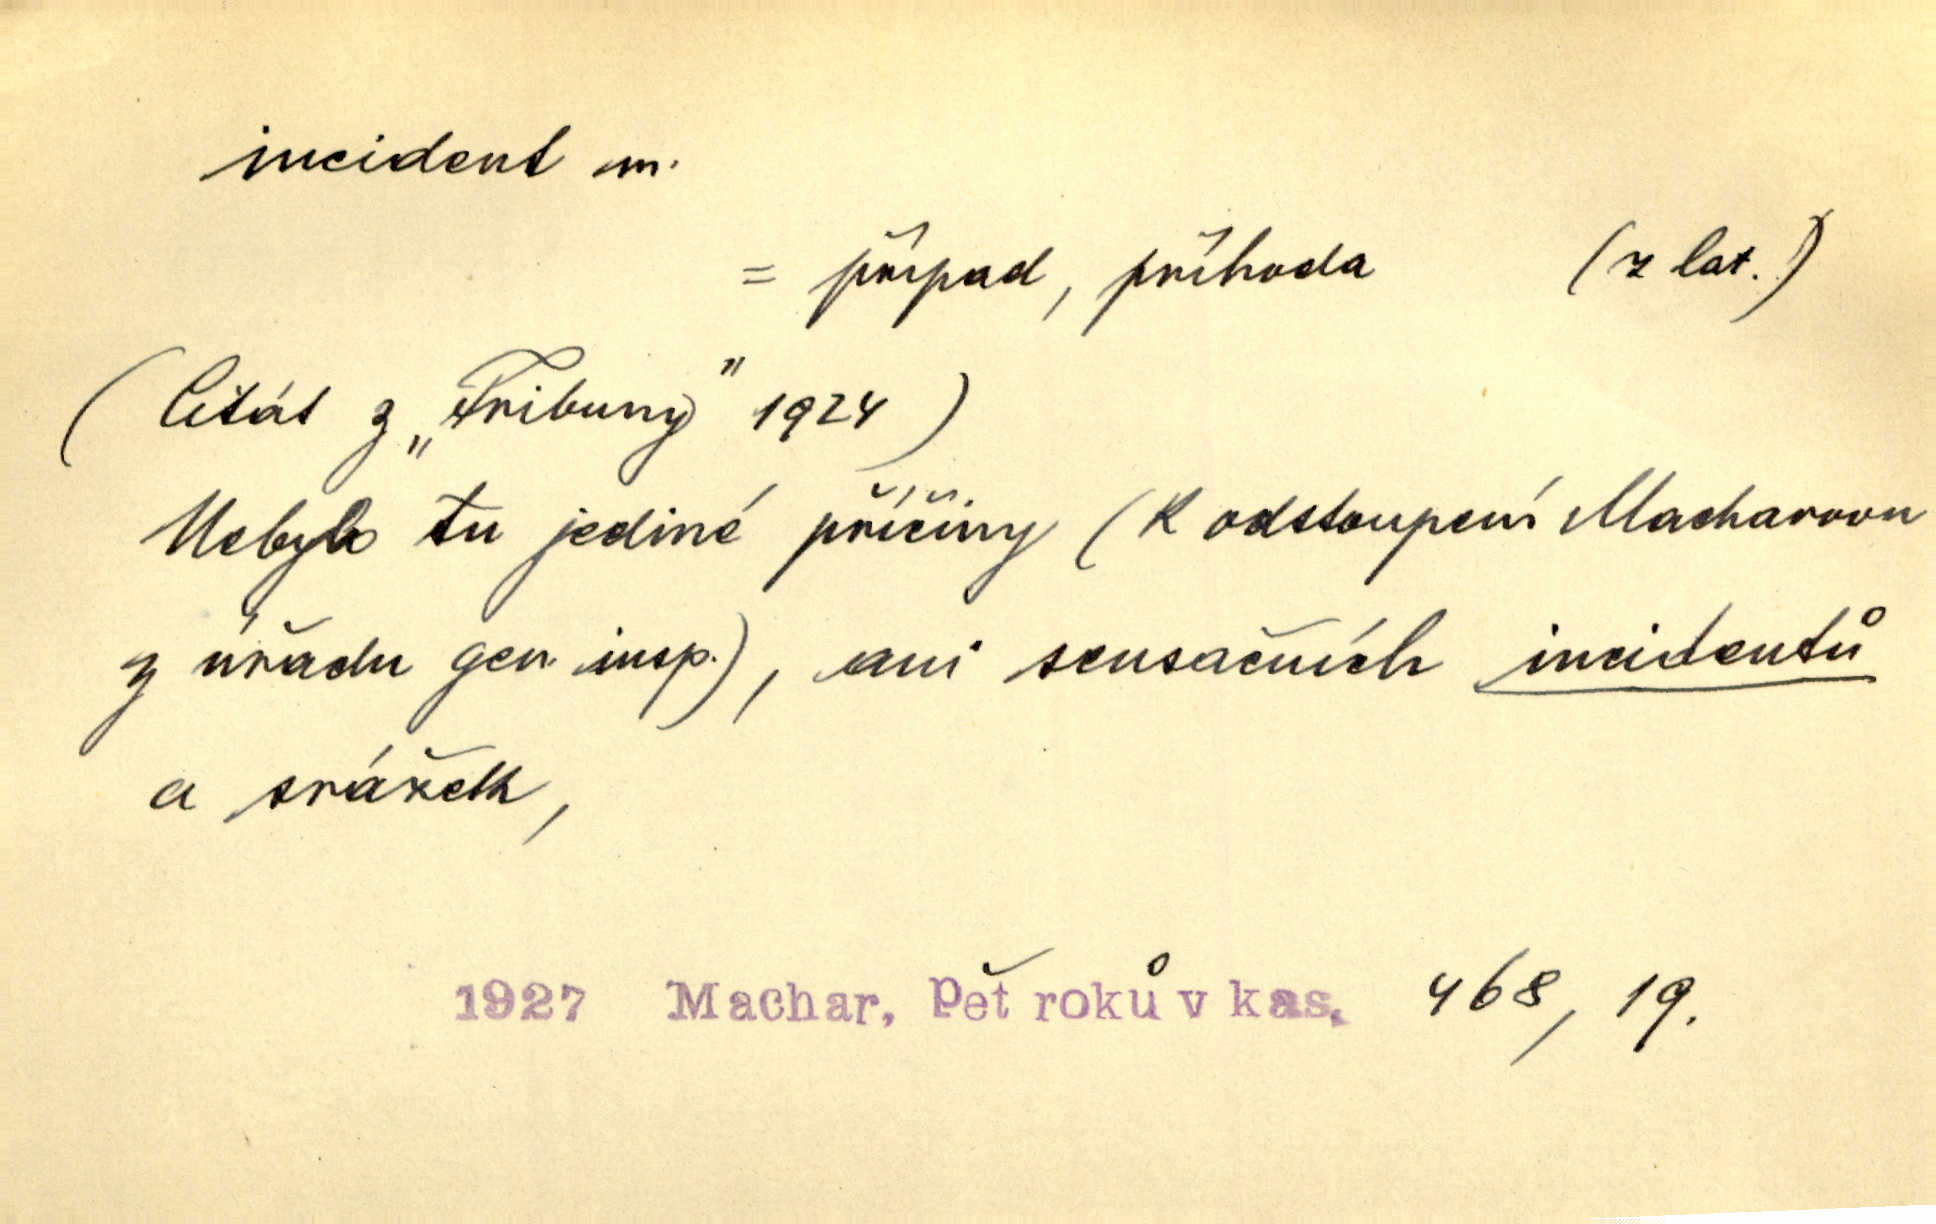 incident m.
= případ, příhoda (z lat.)
(Citát z „Tribuny" 1924)
Nebylo tu jediné příčiny (k odstoupení Macharovu
z úřadu gen. insp.), ani sensačních incidentů
a srážek,
1927 Machar, Pět roků v kas. 468, 19.